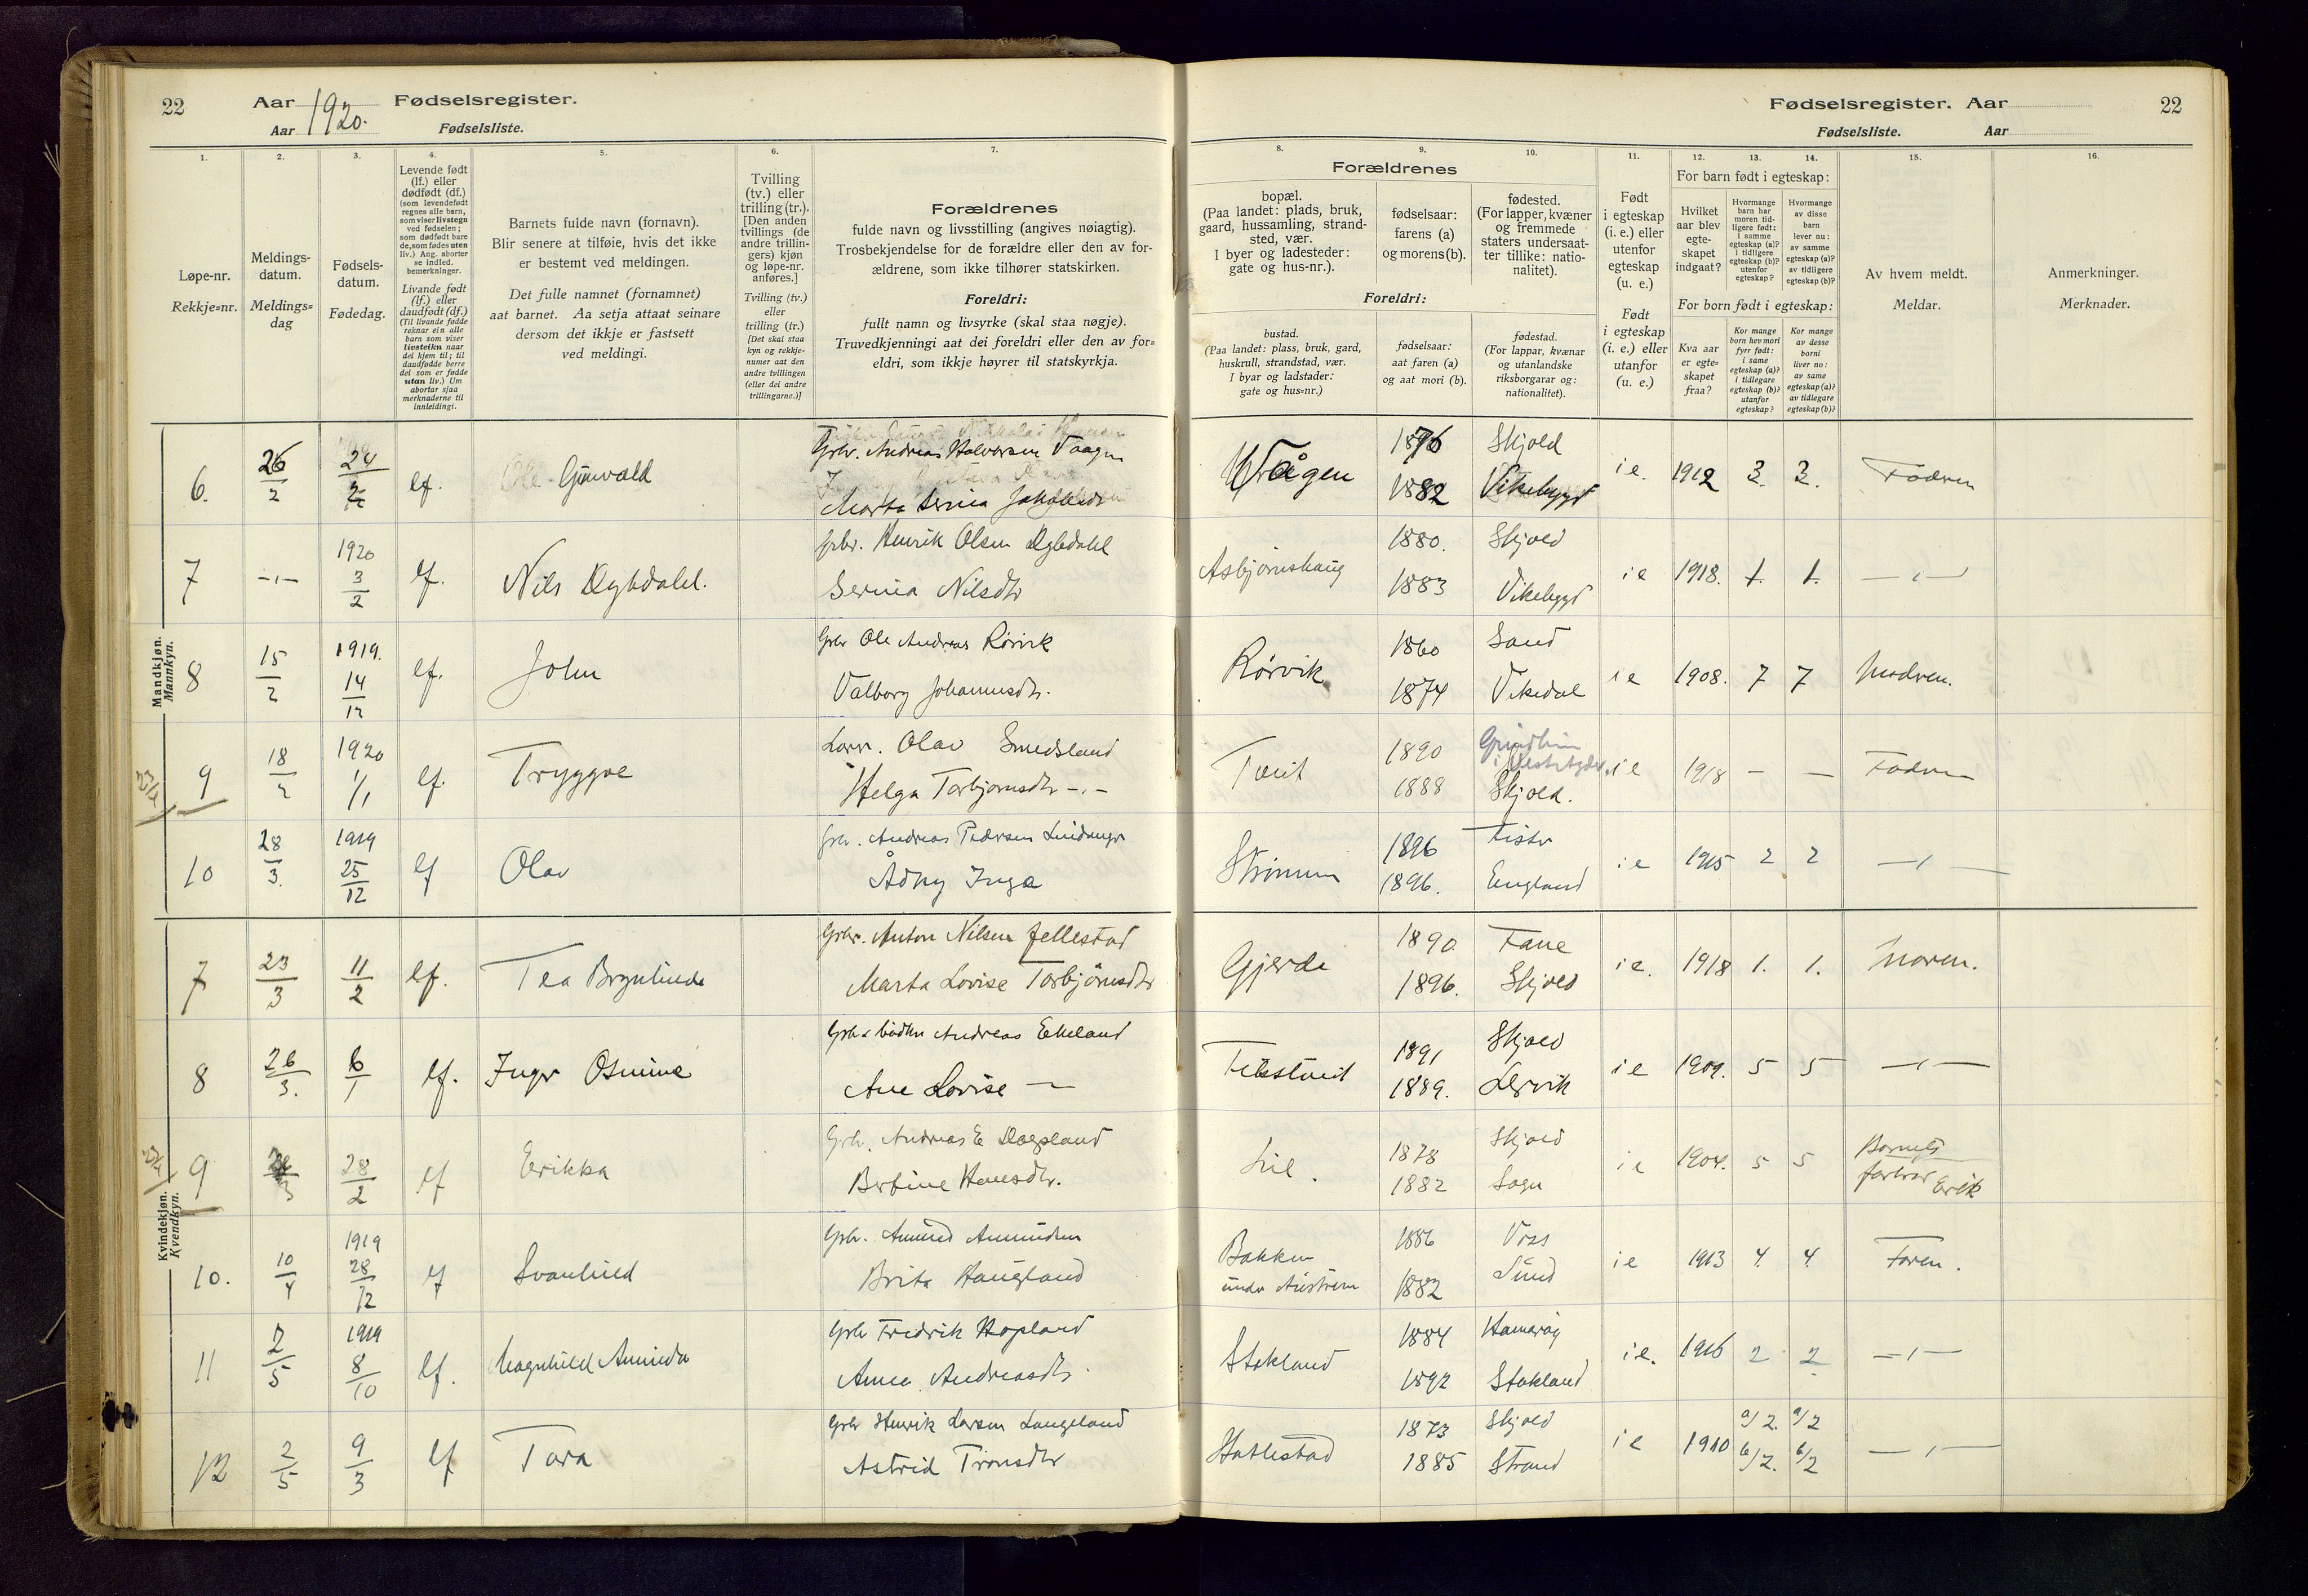 22 Aar 1920. Fødselsregister.
Aar Fødselsliste.
Fødselsregister. Aar 22
Fødselsliste. Aar
1. 2. 3. 4. 5. 6. 7. 8. 9. 10. 11. 12. 13. 14. 15. 16.
Løpe-nr.
Rekkje=nr.
Meldings-
datum.
Meldings=
dag
Fødsels-
datum.
Fødedag.
Levende født
(lf.) eller
dødfødt (df.)
(som levendefødt
regnes alle barn,
som viser livstegn
ved fødselen;
som dødfødt bare
de, som fødes uten
liv.) Ang. aborter
se indled.
bemerkninger.
Livande født
(lf.) eller
daudfødt (df.)
(Til livande fødde
reknar ein alle
barn som viser
livsteikn naar
dei kjem til; til
daudfødde berre
dei som er fødde
utan liv.) Um
abortar sjaa
merknaderne til
innleidingi.
Barnets fulde navn (fornavn).
Blir senere at tilføie, hvis det ikke
er bestemt ved meldingen.
Det fulle namnet (fornamnet)
aat barnet. Aa setja attaat seinare
dersom det ikkje er fastsett
ved meldingi.
Tvilling
(tv.) eller
trilling (tr.).
[Den anden
tvillings (de
andre trillin-
gers) kjøn
og løpe-nr.
anføres.]
Tvilling (tv.)
eller
trilling (tr.)
[Det skal staa
kyn og rekkje-
numer aat den
andre tvillingen
(eller dei andre
trillingarne.)]
Forældrenes
fulde navn og livsstilling (angives nøiagtig).
Trosbekjendelse for de forældre eller den av for-
ældrene, som ikke tilhører statskirken.
Foreldri:
fullt namn og livsyrke (skal staa nøgje).
Truvedkjenningi aat dei foreldri eller den av for=
eldri, som ikkje høyrer til statskyrkja.
Forældrenes
bopæl.
(Paa landet: plads, bruk,
gaard, hussamling, strand-
sted, vær.
I byer og ladesteder:
gate og hus-nr.).
fødselsaar:
farens (a)
og morens (b).
fødested.
(For lapper, kvæner
og fremmede
staters undersaat-
ter tillike: natio-
nalitet).
Foreldri:
bustad.
(Paa landet: plass, bruk, gard,
huskrull, strandstad, vær.
I byar og ladstader:
gate og hus=nr.)
fødselsaar:
aat faren (a)
og aat mori (b).
fødestad.
(For lappar, kvænar
og utanlandske
riksborgarar og:
nationalitet).
Født
i egteskap
(i. e.) eller
utenfor
egteskap
(u. e.)
Født
i egteskap
(i. e.) eller
utanfor
(u. e.)
For barn født i egteskap:
Hvilket
aar blev
egte-
skapet
indgaat?
Hvormange
barn har
moren tid-
ligere født:
i samme
egteskap (a)?
i tidligere
egteskap (b)?
utenfor
egteskap?
Hvormange
av disse
barn
lever nu:
av samme
egteskap (a)?
av tidligere
egteskap (b)?
For born født i egteskap:
Kva aar
er egte-
skapet
fraa?
Kor mange
born hev mori
fyrr født:
i same
egteskap (a)?
i tidlegare
egteskap (b)?
utanfor
egteskap?
Kor mange
av desse
borni
liver no:
av same
egteskap (a)?
av tidlegare
egteskap (b)?
Av hvem meldt.
Meldar.
Anmerkninger.
Merknader.
Mandkjøn.
Mannkyn.
6. 26/2 24/2 lf. Gunvald Grbr. Andreas Halvorsen Vaagen Vågen 1876 Skjold i e. 1912 3. 3. Fadren
1882 Vikebygd
7 -"- 1920 3/2 lf. Nils Dybdahl. Grbr. Henrik Olsen Dybdahl Asbjørnshaug 1880. Skjold i e 1918. 1. 1. -"-
Serina Nilsdtr 1883 Vikebygd
8 15/2 1919. 14/12 lf. John Grbr Ole Andreas Rørvik Rørvik 1860 Sand i e 1908. 7 7 Modren.
Valborg Johannesdtr. 1874 Vikedal
9 18/2 1920 1/1 lf. Tryggve Olav Smedsland Tveit 1890 i e 1918 - - Fadren
Helga Torbjørnsdtr -"- 1888 Skjold.
10 28/3. 1919 25/12 lf Olav Grbr. Andreas Pedersen 1896 i e 1915 2 2 -"-
Ådny Inga 1896. England
Kvindekjøn.
Kvendkyn.
7 23/3 11/2 lf. Tea Brynhilda Grbr. Anton Nilsen Fjellestad Gjerde 1890. Fane i e. 1918 1. 1. Moren.
Marta Lovise Torbjørnsdtr 1896. Skjold
8 26/3. 6/1 lf. Inger Osmine Andreas Ekeland 1891 Skjold i e 1909. 5 5 -"-
Ane Lovise -"- 1889. Lervik
9 28/2 lf Erikka Grbr. Andreas E Dagsland Lie. 1878 Skjold i e 1904. 5 5 Barnets
Bertine Hansdtr. 1882 Sogn farbror Erik
10. 10/4 1919 28/12 lf Svanhild Grbr. Amund Amundsen Bakken 1886 Voss i e 1913 4. 4. Faren.
Brita Haugland 1882 Sund
11 2/5 1919 8/10 lf. Magnhild Aminda Grbr Fredrik Hopland Stakland 1884 i e. 1916 2 2 -"-
Anna Andreasdtr. 1892 Stakland
12 2/5 9/3 lf Tora Grbr Henrik Larsen Langeland Hatlestad 1873 Skjold i e 1910 a/2. a/2 -"-
Astrid Tronsdtr 1885 Strand b/2. b/2